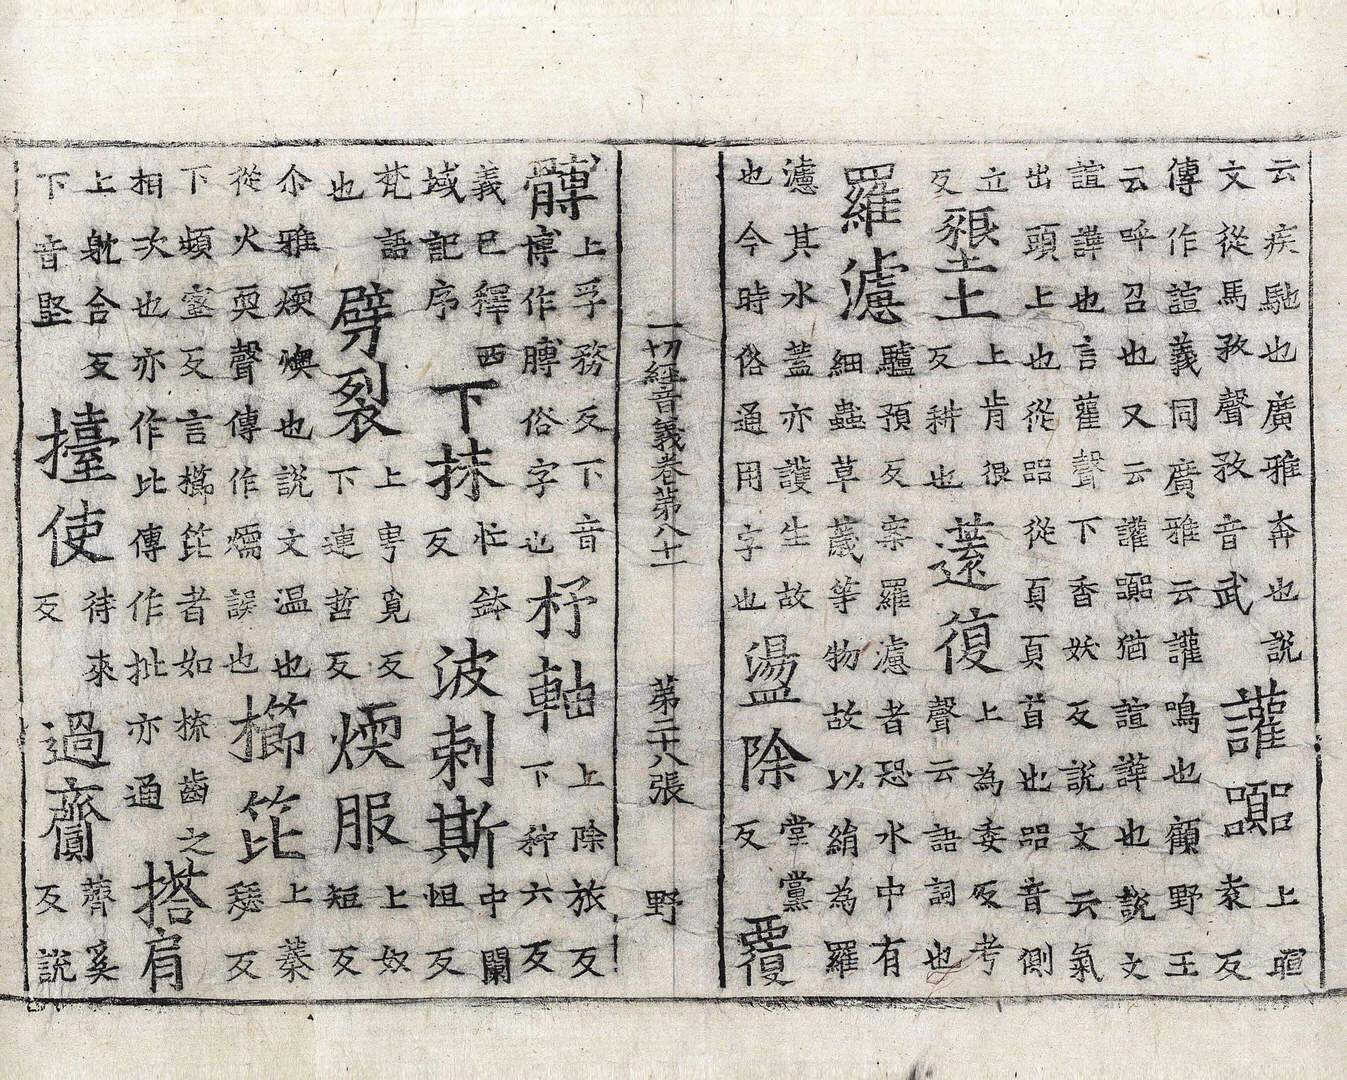 云疾馳也廣雅奔也説文從馬孜聲孜音武讙嚻上喧袁反
傳作諠義同廣雅云讙鳴也顧野王
云呼召也又云讙嚻猶諠譁也説文
諠譁也言雚聲下香妖反説文云氣
出頭上也從㗊從頁頁首也㗊音側
立反墾土上肯很反耕也薳復上為委反考聲云語詞也
羅濾驢預反案羅濾者恐水中有細蟲草薉等物故以絹為羅
濾其水蓋亦護生故也今時俗通用字也盪除堂黨反覆
一切經音義卷第八十一 第二十八張 野
髆上孚務反下音博作膊俗字也杼軸上除旅反下种六反
義已釋西域記序下抹忙鉢反波剌斯中闌怛反
梵語也劈裂上甹覓反下連哲反煗服上奴短反
尒雅煗燠也説文温也從火耎聲傳作燸誤也櫛笓上蓁瑟反
下頻蜜反言櫛笓者如梳齒之相次也亦作比傳作批亦通搭肩
上躭合反下音堅擡使待來反過齎薺奚反説